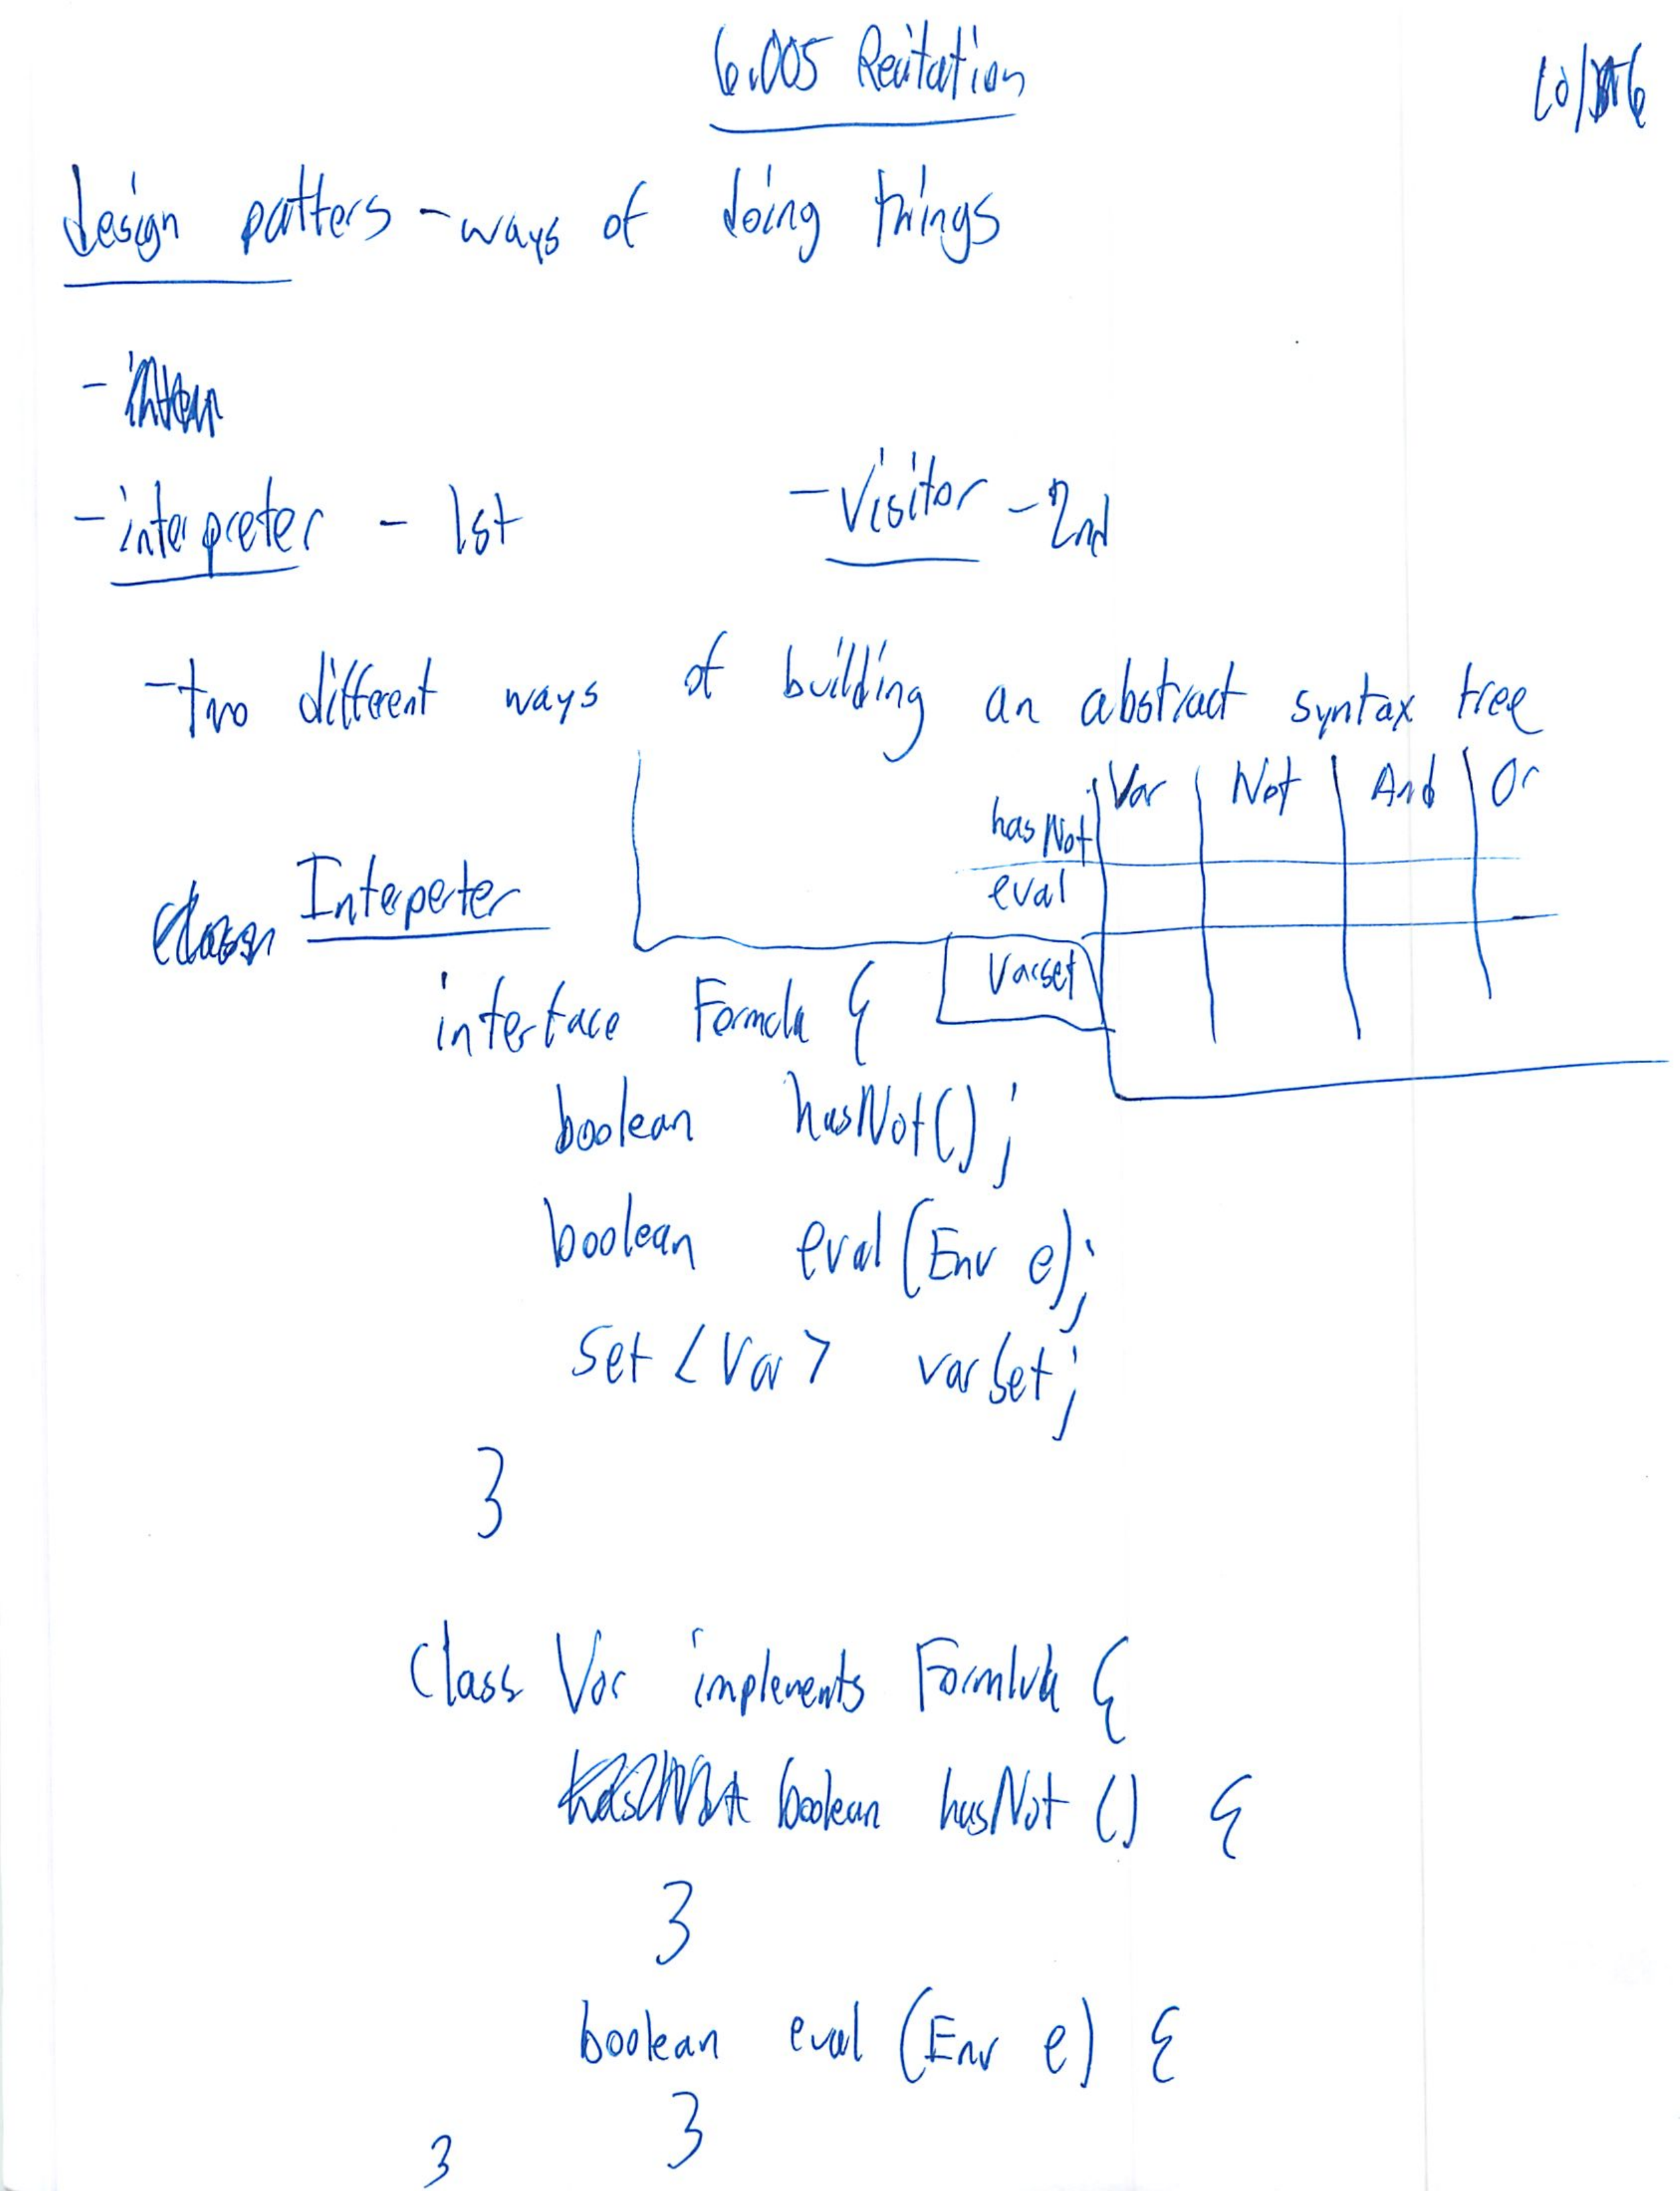 6.005 Recitation
design patters - ways of doing things
- interpreter - 1st
- Visitor - 2nd
- two different ways of building an abstract syntax tree
Var Not And Or
hasNot
eval
Varset
Interperter
interface Formula {
boolean hasNot();
boolean eval(Env e);
Set <Var> varSet;
}
Class Var implements Formlula {
boolean hasNot () {
}
boolean eval (Env e) {
}
}